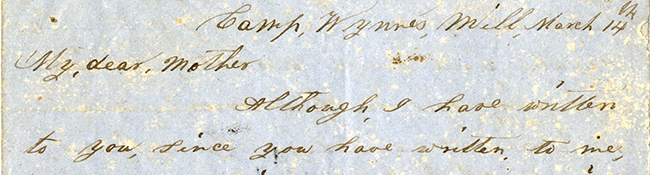 Camp, Wynnes, Mill, March 14th
My, dear, Mother
Although, I have written
to you, since you have written, to me,